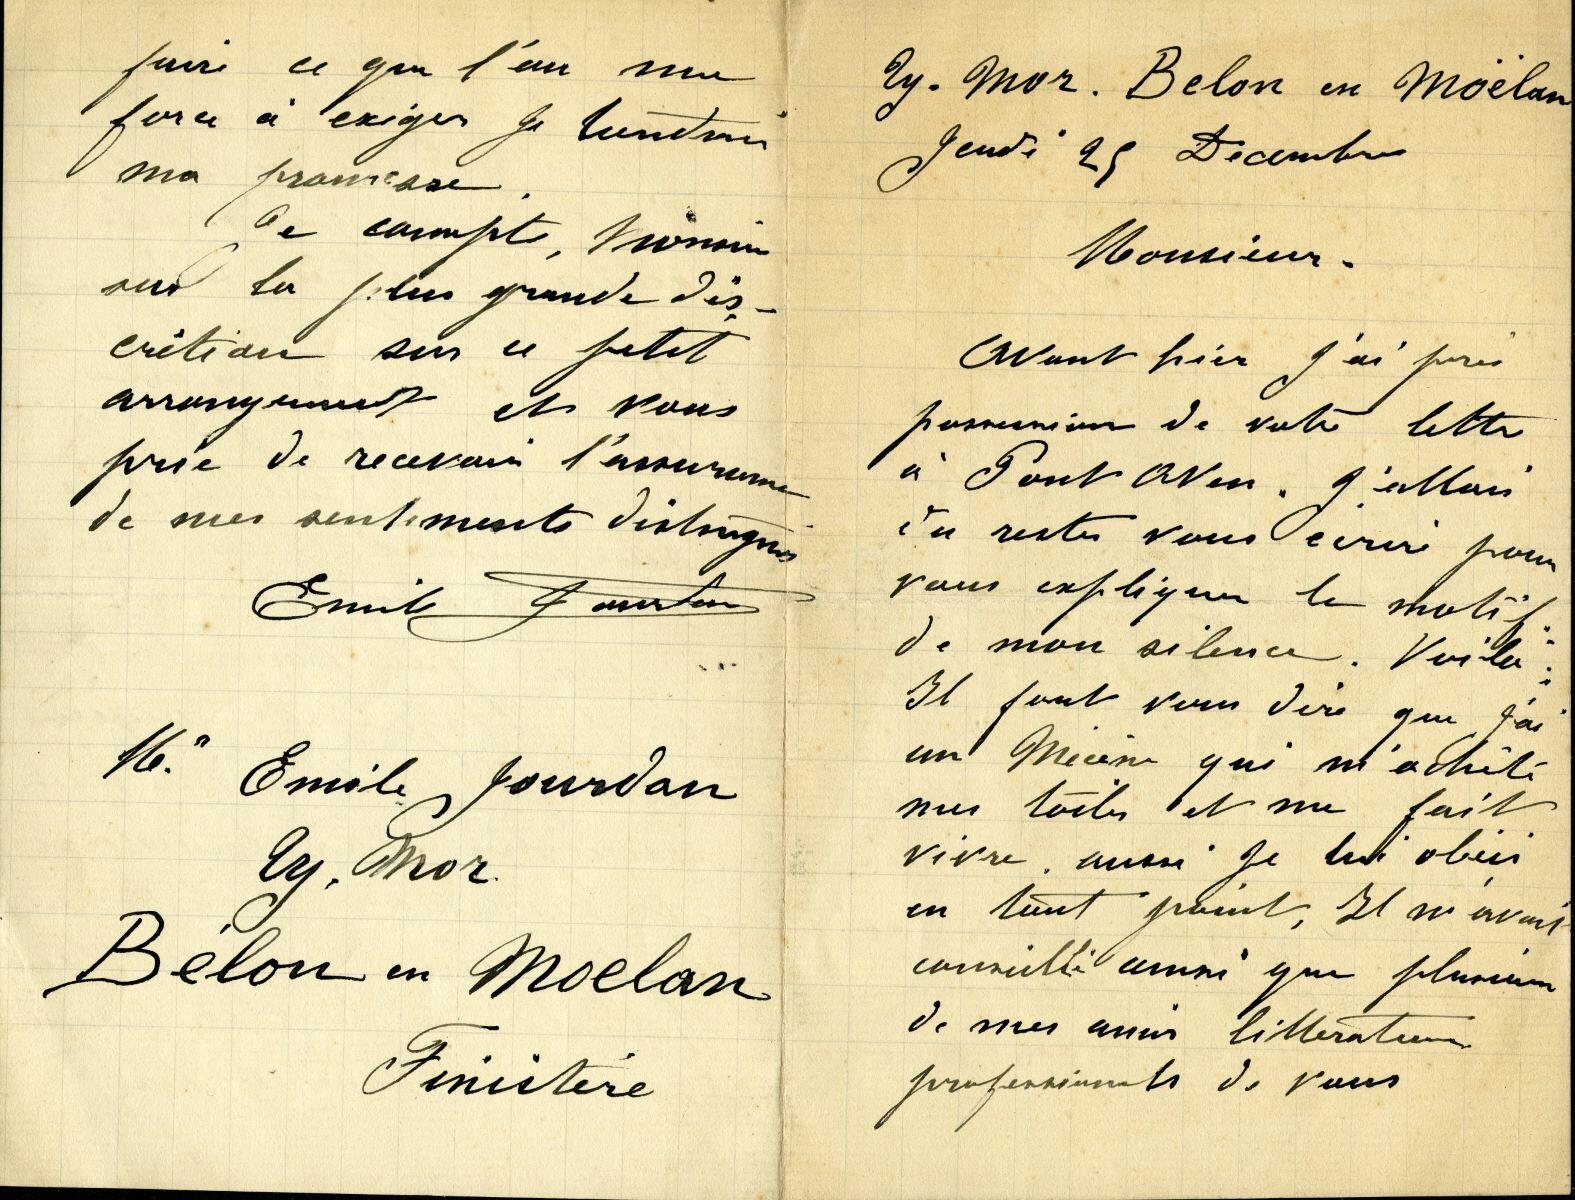 faire ce que l'on me
force à exiger je tiendrai
ma promesse.
Je compte, Monsieur
sur la plus grande dis-
crétion sur ce petit
arrangement et vous
prie de recevoir l'assurance
de mes sentiments distingués
Emile Jourdan
Mr Emile Jourdan
Ty. Mor.
Bélon en Moelan
Finistère
Ty. Mor. Belon en Moëlan
Jeudi 25 Decembre
Monsieur.
Avant hier j'ai pris
possession de votre lettre
à Pont Aven. J'allais
du reste vous écrire pour
vous expliquer le motif
de mon silence. Voilà:
Il faut vous dire que j'ai
un Mécène qui m'achète
mes toiles et me fait
vivre. aussi je lui obéis
en tout point, Il m'avait
conseillé ainsi que plusieurs
de mes amis litterateurs
professionnels de vous